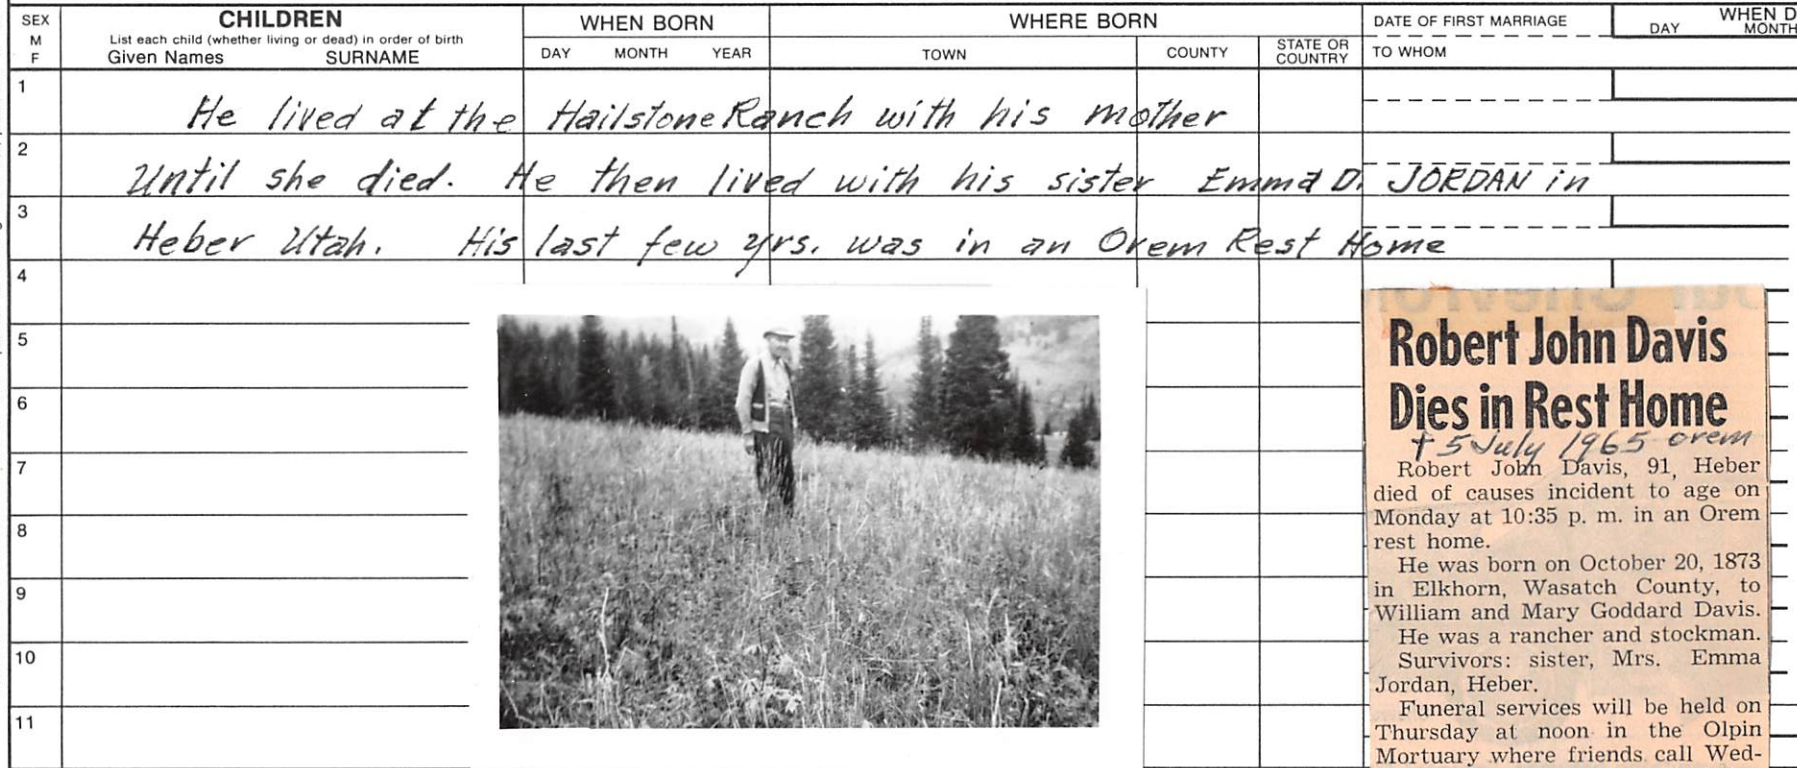 SEX
M
F
CHILDREN
List each child (whether living or dead) in order of birth
Given Names SURNAME
WHEN BORN
DAY MONTH YEAR
WHERE BORN
TOWN
COUNTY
STATE OR
COUNTRY
DATE OF FIRST MARRIAGE
TO WHOM
WHEN D
DAY MONTH
1
He lived at the Hailstone Ranch with his mother
2
Until she died. He then lived with his sister Emma D. JORDAN in
3
Heber Utah. His last few yrs. was in an Orem Rest Home
4
5
6
7
8
9
10
11
Robert John Davis
Dies in Rest Home
† 5 July 1965 Orem
Robert John Davis, 91, Heber
died of causes incident to age on
Monday at 10:35 p. m. in an Orem
rest home.
He was born on October 20, 1873
in Elkhorn, Wasatch County, to
William and Mary Goddard Davis.
He was a rancher and stockman.
Survivors: sister, Mrs. Emma
Jordan, Heber.
Funeral services will be held on
Thursday at noon in the Olpin
Mortuary where friends call Wed-